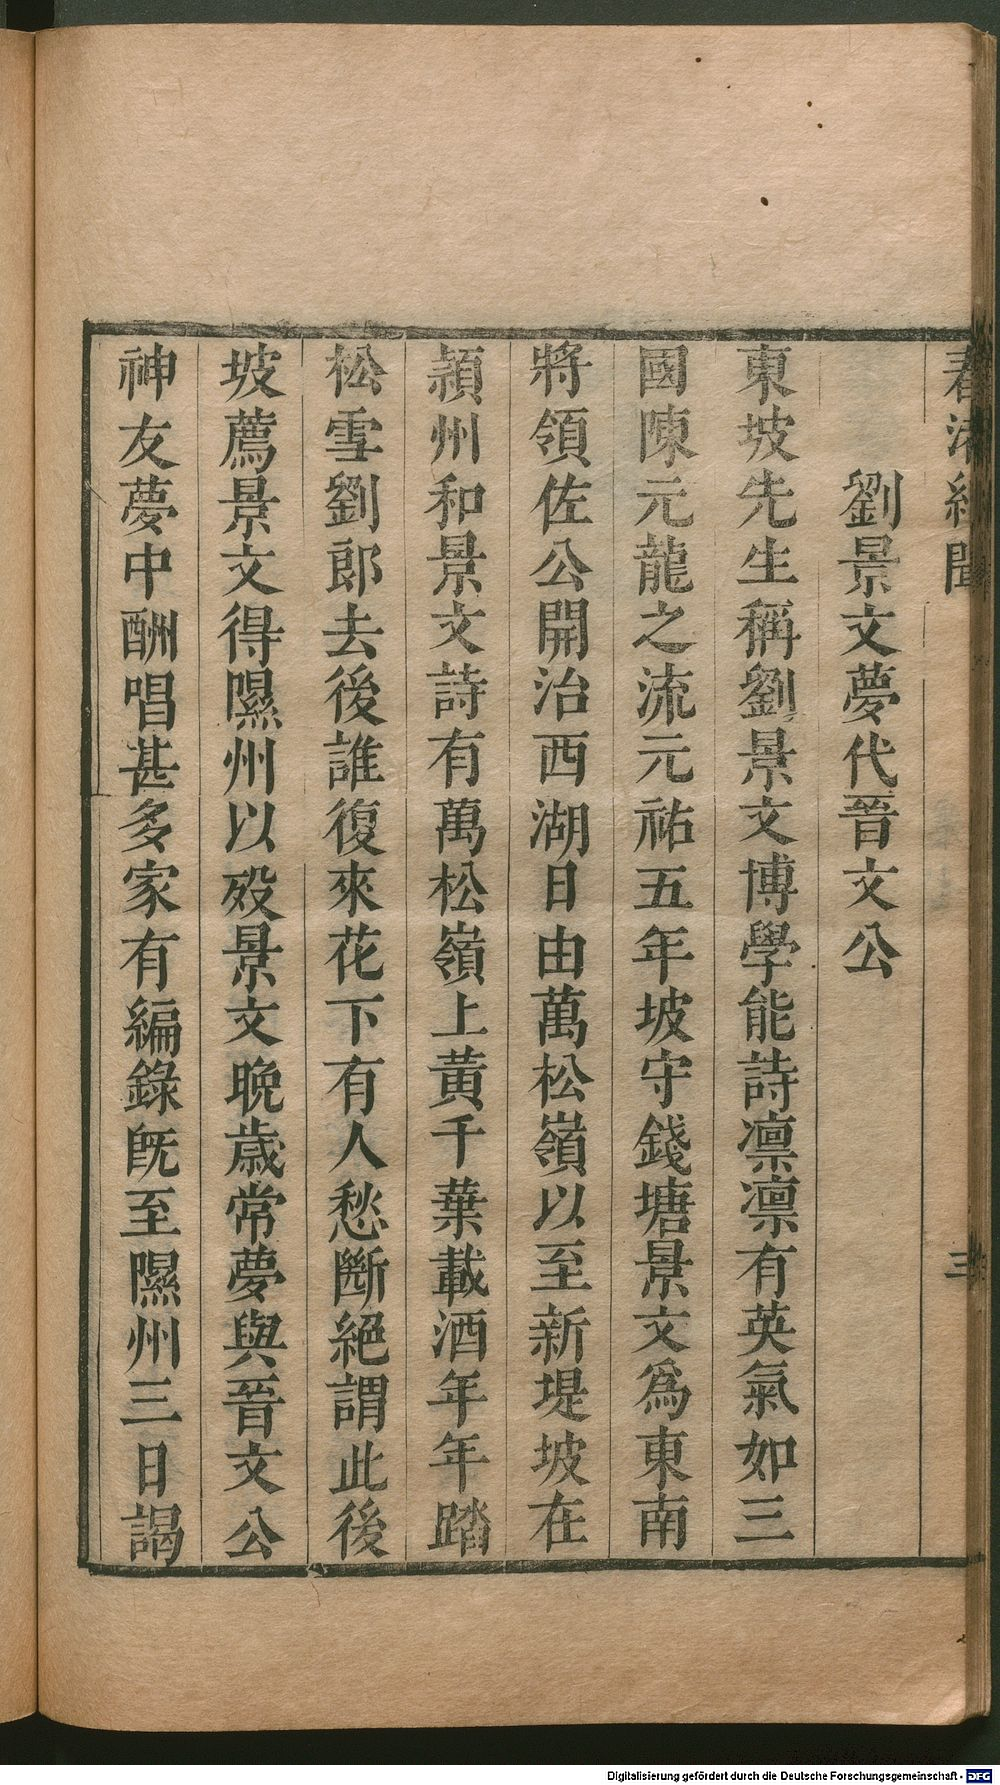 春渚紀聞 三
劉景文夢代晉文公
東坡先生稱劉景文博學能詩凛凛有英氣如三
國陳元龍之流元祐五年坡守錢塘景文爲東南
將領佐公開治西湖日由萬松嶺以至新堤坡在
潁州和景文詩有萬松嶺上黃千葉載酒年年踏
松雪劉郎去後誰復來花下有人愁斷絕謂此後
坡薦景文得隰州以殁景文晚歲常夢與晉文公
神友夢中酬唱甚多家有編錄旣至隰州三日謁
Digitalisierung gefördert durch die Deutsche Forschungsgemeinschaft - DFG